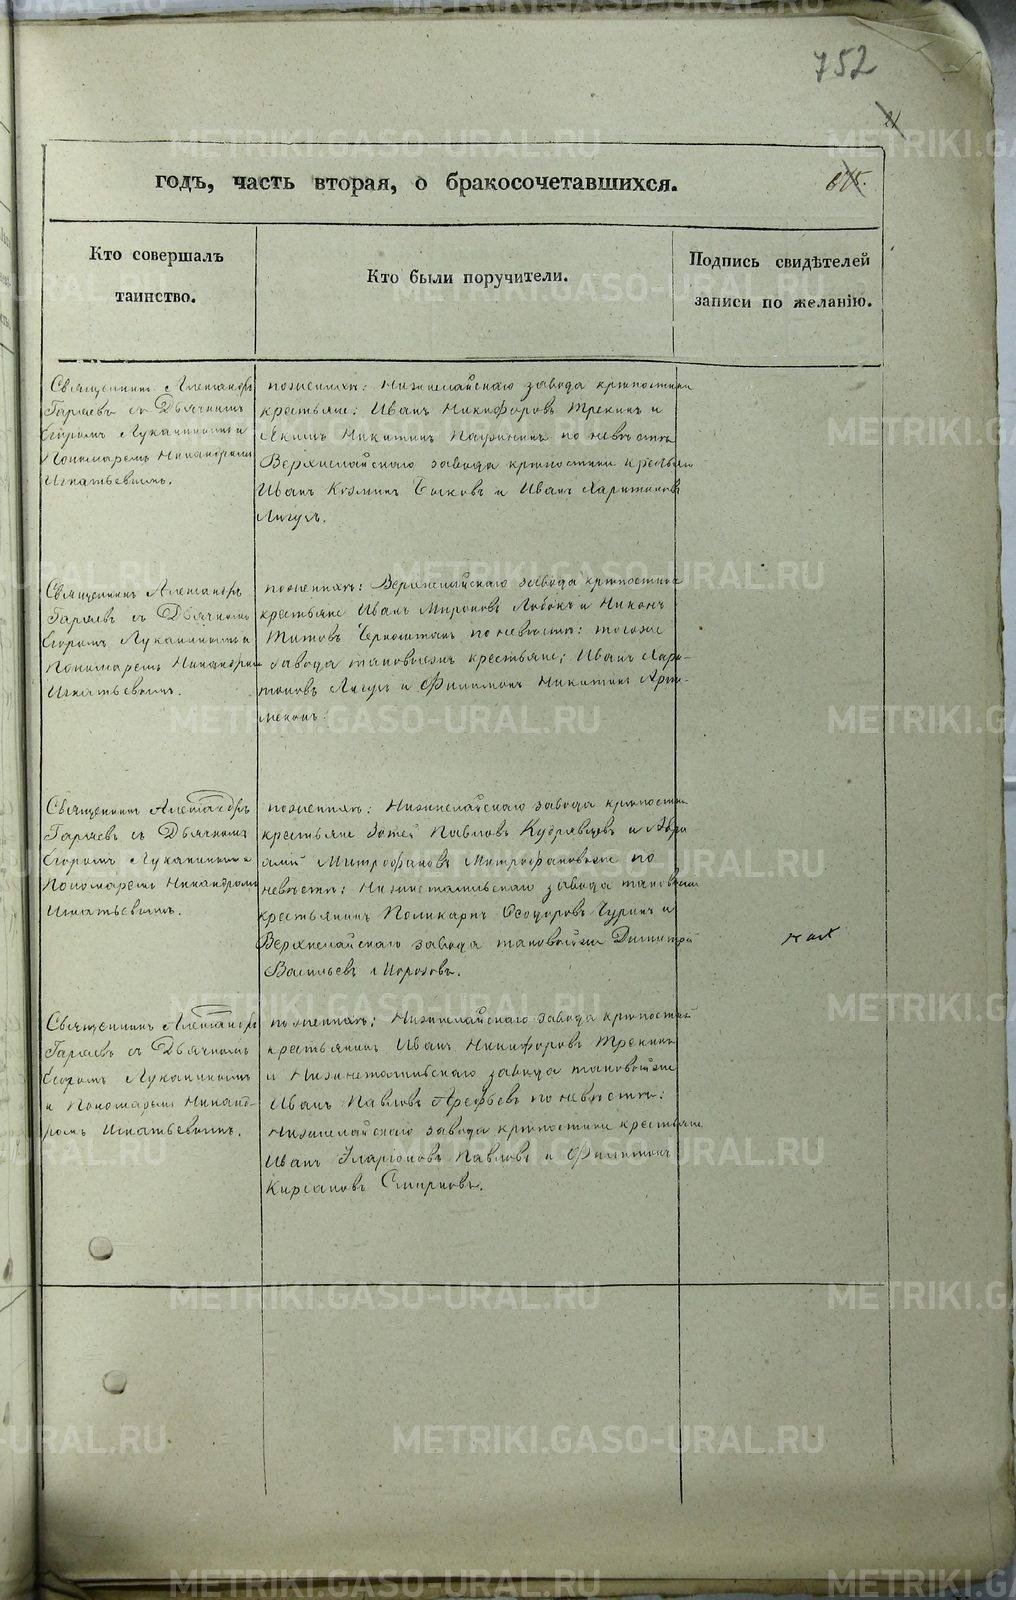 752
21
годъ, часть вторая, о бракосочетавшихся.
675.
Кто совершалъ
таинство.
Кто были поручители.
Подпись свидѣтелей
записи по желанію.
Священникъ Александръ
Гаряевъ съ Дьячкомъ
Егоромъ Луканинымъ и
Пономаремъ Никандромъ
Игнатьевымъ.
по женихѣ: Нижнелайскаго завода крѣпостные
крестьяне: Иванъ Никифоровъ Трекинъ и
Якимъ Никитинъ по невѣстѣ
Верхнелайскаго завода крѣпостные крестьяне
Иванъ Козминъ Быковъ и Иванъ Харитоновъ
Лигузъ.
Священникъ Александръ
Гаряевъ съ Дьячкомъ
Егоромъ Луканинымъ и
Пономаремъ Никандромъ
Игнатьевымъ.
по женихѣ: Верхнелайскаго завода крѣпостные
крестьяне Иванъ Мироновъ и Никонъ
Титовъ по невѣстѣ: тогоже
завода таковыежъ крестьяне: Иванъ Хари-
тоновъ Лигузъ и Филимонъ Никитинъ
Священникъ Александръ
Гаряевъ съ Дьячкомъ
Егоромъ Луканинымъ и
Пономаремъ Никандромъ
Игнатьевымъ.
по женихѣ: Нижнелайскаго завода крѣпостные
крестьяне Зотей Павловъ Кудрявцевъ и Авра-
амій Митрофановъ по
невѣстѣ: Нижнетагильскаго завода таковыйже
крестьянинъ Поликарпъ Ѳеодоровъ Чуринъ и
Верхнелайскаго завода таковойже Димитрій
Васильевъ Морозовъ.
Священникъ Александръ
Гаряевъ съ Дьячкомъ
Егоромъ Луканинымъ
и Пономаремъ Никанд-
ромъ Игнатьевымъ.
по женихѣ: Нижнелайскаго завода крѣпостный
крестьянинъ Иванъ Никифоровъ Трекинъ
и Нижнетагильскаго завода таковойже
Иванъ Павловъ Арефьевъ по невѣстѣ:
Нижнелайскаго завода крѣпостные крестьяне
Иванъ Иларіоновъ Павловъ и Филимонъ
Кирсановъ Смирновъ.
METRIKI.GASO-URAL.RU